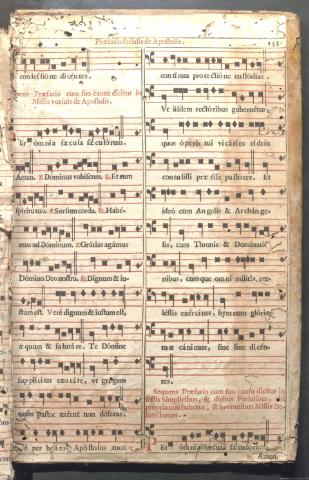 Præfatio ferialis de Apostolis.
153
confessione dicentes.
Præfatio cum suo cantu dicitur in
Missis votiuis de Apostolis.
Per omnia sæcula sæculórum.
Amen. ℣. Dóminus vobíscum. ℟. Et cum
spíritu tuo. ℣. Sursum corda. ℟. Habé-
mus ad Dóminum. ℣. Grátias agámus
Dómino Deo nostro. ℟. Dignum & iu-
stum est. Verè dignum & iustum est,
æquum & salutáre. Te Dómine
supplíciter exoráre, vt gregem
tuum pastor ætérne non déseras:
sed per beátos Apóstolos tuos
contínua protectióne custódias.
Vt iísdem rectóribus gubernétur,
quos óperis tui vicários eídem
contulísti præésse pastóres. Et
ídeò cum Angelis & Archánge-
lis, cum Thronis & Dominatió-
nibus, cumque omni milítia cæ-
léstis exércitus, hymnum glóriæ
tuæ cánimus, sine fine dicén-
tes.
Sequens Præfatio cum suo cantu dicitur in
festis Simplicibus, & diebus Ferialibus,
propria non habetur, & in omnibus Missis De-
functorum.
Per omnia sæcula sæculórum.
℟. Amen.